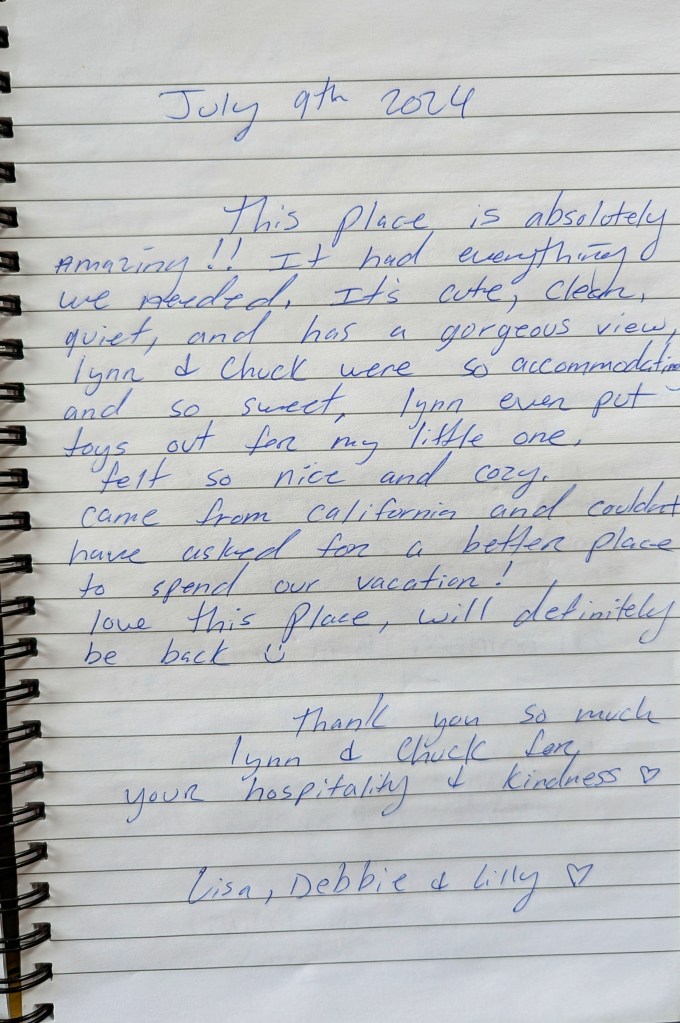 July 9th 2024
This place is absolutely
Amazing!! It had everything
we needed. It's cute, clean,
quiet, and has a gorgeous view,
lynn & Chuck were so accommodating
and so sweet, lynn even put
toys out for my little one.
felt so nice and cozy.
came from California and couldn't
have asked for a better place
to spend our vacation!
love this place, will definitely
be back ü
thank you so much
lynn & Chuck for
your hospitality & kindness ♡
Lisa, Debbie & Lilly ♡